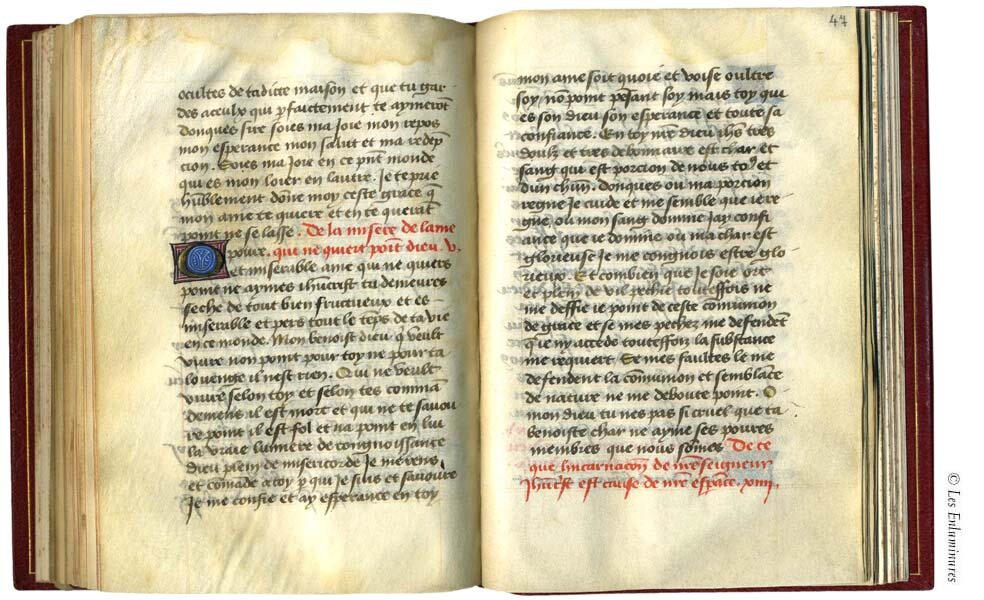 ocultes de ta dicte maison et que tu gar
des aceulx qui pfaictement te aymerōt
donques sire soies ma Joie mon repos
mon esperance mon salut et ma redēp
cion. Soies ma Joie en ce pn̄t monde
qui es mon loier en lautre. Je te prie
hūblement dōne moy ceste grace q̄
mon ame te quiere et en te querāt
point ne se lasse. De la misere de lame
poure. qui ne quiert poīt dieu. v.
O et miserable ame qui ne quiers
point ne aymes ihūcrist tu demeures
seche de tout bien fructueux et es
miserable et pers tout le tēps de ta vie
en ce monde. Mon benoist dieu q̄ veult
vivre non point pour toy ne pour ta
louenge il nest rien. Qui ne veult
vivre selon toy et selon tes commā
demens il est mort et qui ne te savou
re point il est fol et na point en lui
la vraie lumiere de congnoissance
dieu plein de misericorde Je me rens
et cōmāde a toy p qui je suis et savoure
Je me confie et ay esperance en toy
47
mon ame soit quoie et voise oultre
soy, nō point pēsant soy mais toy qui
es son dieu son esperance et toute sa
confiance. En toy nr̄e dieu ihs tres
doulx et tres debonnaire est char et
sang qui est porcion de nous to9 et
dun chūn. donques ou ma porcion
regne Je cuide et me semble que ie re
gne, ou mon sang domine Jay confi
ance que ie domine ou ma char est
glorieuse Je me congnois estre glo
rieux. Et combien que Je soie ort
et plein de vil pechie toutteffois ne
me deffie ie point de ceste cōmunion
de grace et se mes pechez me defendent
que ny accede toutteffoiz la substance
me requiert Se mes faultes le me
defendent la cōmunion et semblāce
de nature ne me deboute point. O
mon dieu tu nes pas si cruel que ta
benoiste char ne ayme ses poures
membres que nous sōmes De ce
que lincarnacōn de nr̄e seigneur
Jhūcrist est cause de nr̄e espāce. xiiij.
© Les Enluminures